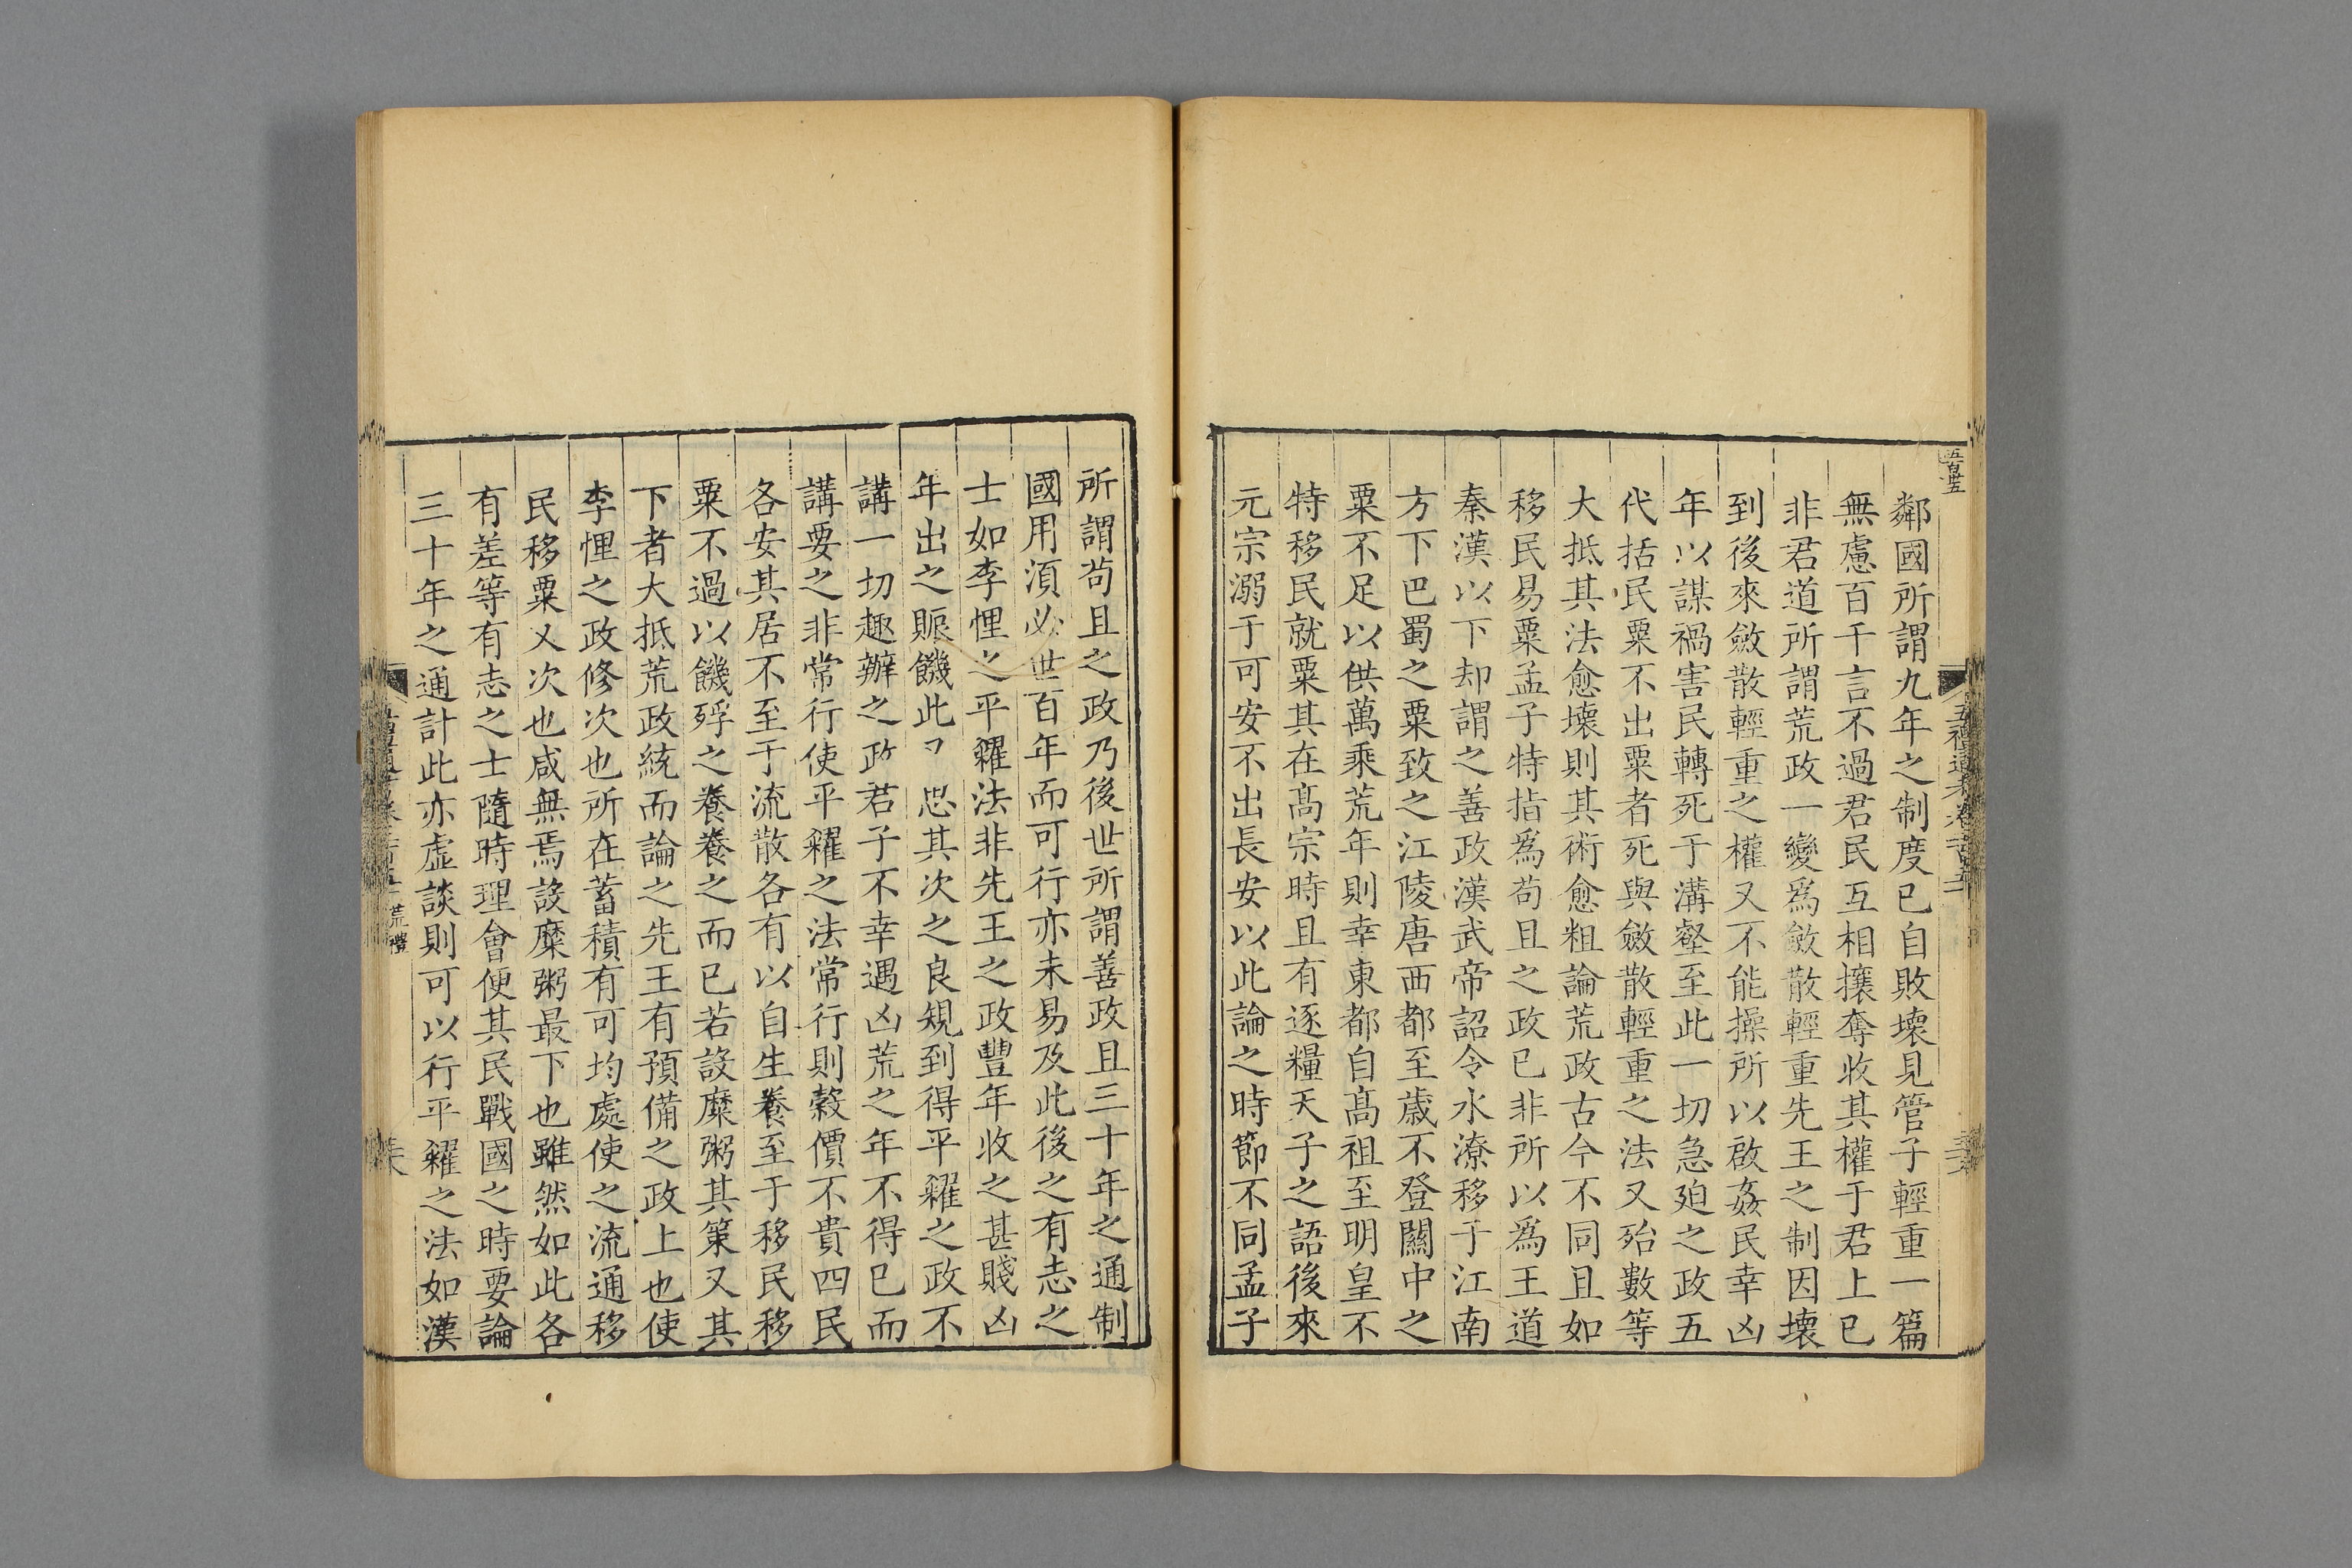 鄰國所謂九年之制度已自敗壞見管子輕重一篇
無慮百千言不過君民互相攘奪收其權于君上已
非君道所謂荒政一變爲斂散輕重先王之制因壞
到後來斂散輕重之權又不能操所以啟姦民幸凶
年以謀禍害民轉死于溝壑至此一切急廹之政五
代括民粟不出粟者死與斂散輕重之法又殆數等
大抵其法愈壞則其術愈粗論荒政古今不同且如
移民易粟孟子特指爲苟且之政已非所以爲王道
秦漢以下却謂之善政漢武帝詔令水潦移于江南
方下巴蜀之粟致之江陵唐西都至歲不登關中之
粟不足以供萬乘荒年則幸東都自髙祖至明皇不
特移民就粟其在髙宗時且有逐糧天子之語後來
元宗溺于可安不出長安以此論之時節不同孟子
所謂苟且之政乃後世所謂善政且三十年之通制
國用湏必世百年而可行亦未易及此後之有志之
士如李悝之平糴法非先王之政豐年收之甚賤凶
年出之賑饑此思其次之良規到得平糴之政不
講一切趣辦之政君子不幸遇凶荒之年不得已而
講要之非常行使平糴之法常行則穀價不貴四民
各安其居不至于流散各有以自生養至于移民移
粟不過以饑殍之養養之而已若設糜粥其策又其
下者大抵荒政統而論之先王有預備之政上也使
李悝之政修次也所在蓄積有可均處使之流通移
民移粟又次也咸無焉設糜粥最下也雖然如此各
有差等有志之士隨時理會便其民戰國之時要論
三十年之通計此亦虛談則可以行平糴之法如漢